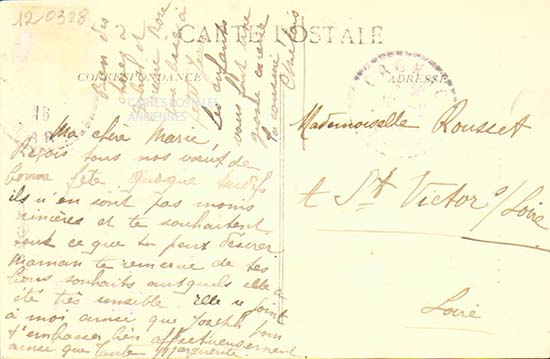 120328
CARTE POSTALE
CORRESPONDANCE
ADRESSE
CARTES POSTALES
ANCIENNES
Ma chère Marie,
Reçois tous nos vœux de
bonne fête quoique tardifs
ils n'en sont pas moins
sincères et te souhaitent
tout ce que tu peux désirer
Maman te remercie de tes
bons souhaits auxquels elle a
été très sensible. Elle se joint
à moi ainsi que Joseph pour
t'embrasser bien affectueusement
ainsi que tante Marguerite.
Bien des
choses à
Les enfants
vous font une
grosse caresse
Ta cousine
Mademoiselle Rousset
à St Victor s/Loire
Loire